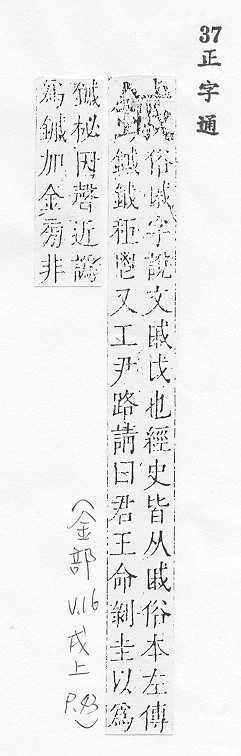 37正字通
鏚
俗戚字說文戚戉也經史皆从戚俗本左傳
鏚鉞秬鬯又工尹路請曰君王命剝圭以為
鏚柲因聲近譌
為鏚加金旁非
(金部 V.16 戌上 P.43)